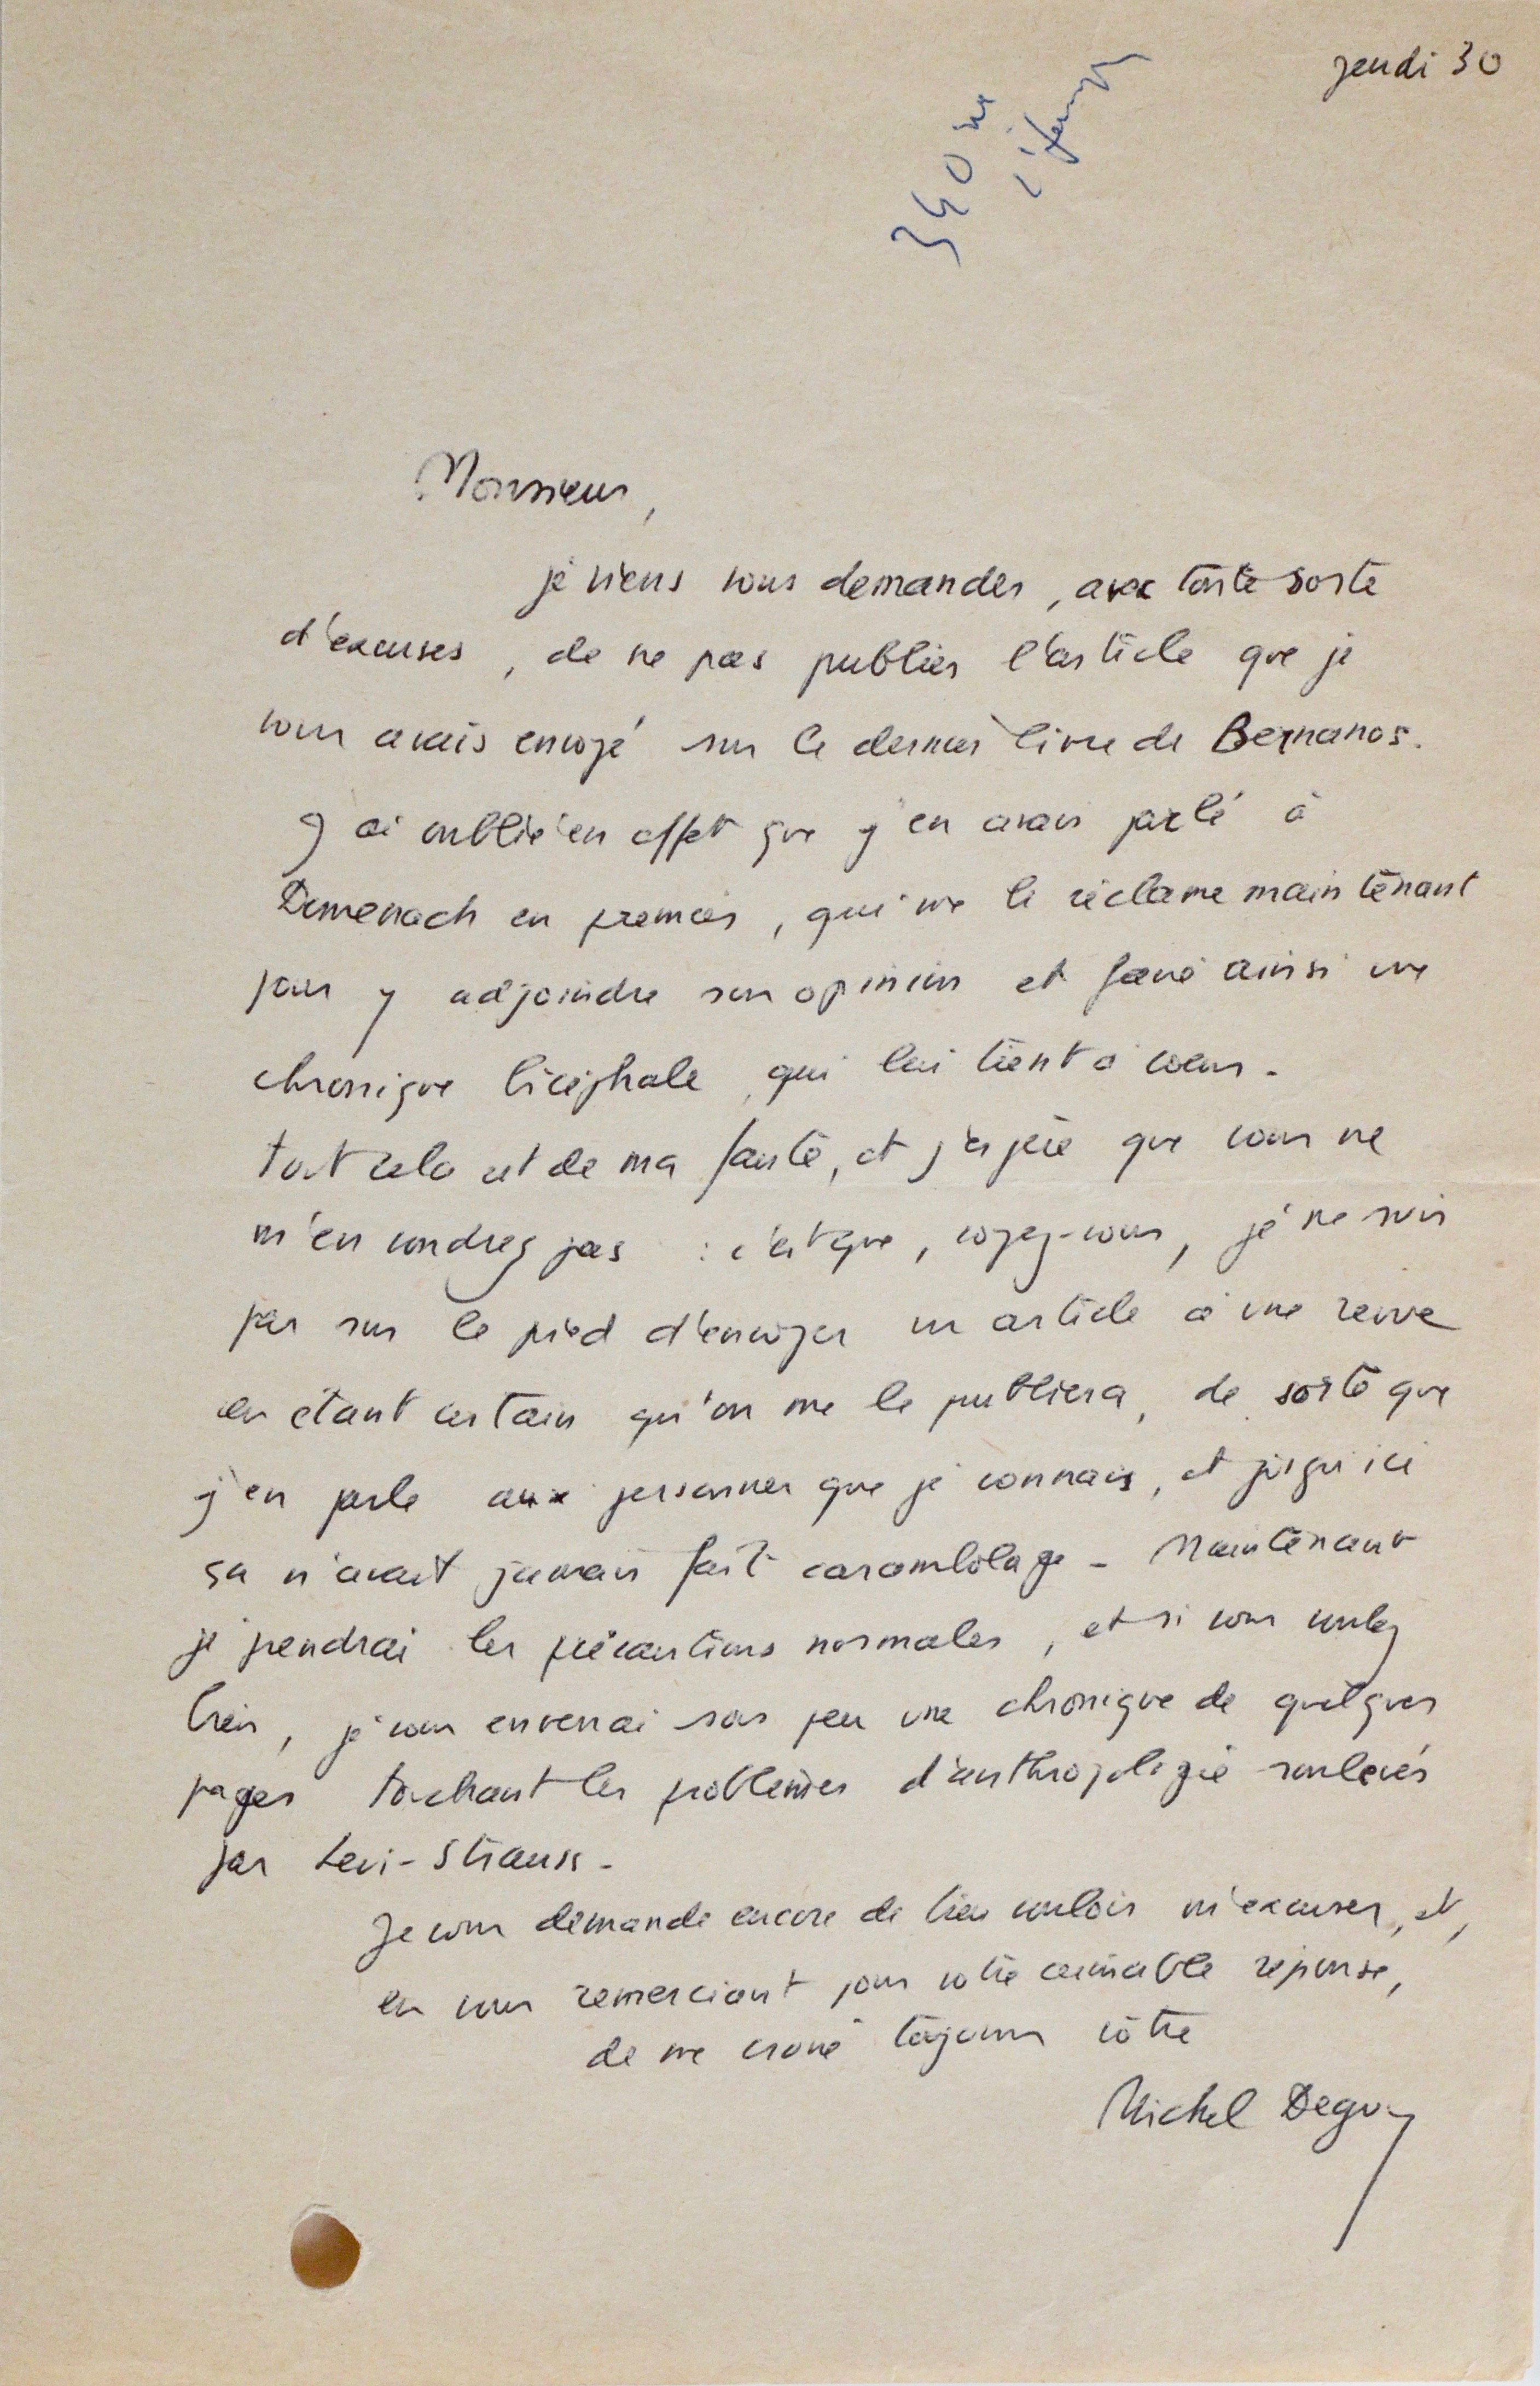 jeudi 30
Monsieur,
je viens vous demander, avec toute sorte
d'excuses, de ne pas publier l'article que je
vous avais envoyé sur le dernier livre de Bernanos.
J'ai oublié en effet que j'en avais parlé à
Domenach en premier, qui me le réclame maintenant
pour y adjoindre son opinion et faire ainsi une
chronique bicéphale, qui lui tient à coeur.
tout cela est de ma faute, et j'espère que vous ne
m'en voudrez pas : c'est que, voyez-vous, je ne suis
pas sur le pied d'envoyer un article à une revue
en étant certain qu'on me le publiera, de sorte que
j'en parle aux personnes que je connais, et jusqu'ici
ça n'avait jamais fait carambolage - Maintenant
je prendrai les précautions normales, et si vous voulez
bien, je vous enverrai sous peu une chronique de quelques
pages touchant les problèmes d'anthropologie soulevés
par Levi-Strauss -
Je vous demande encore de bien vouloir m'excuser, et,
en vous remerciant pour votre aimable réponse,
de me croire toujours vôtre
Michel Deguy